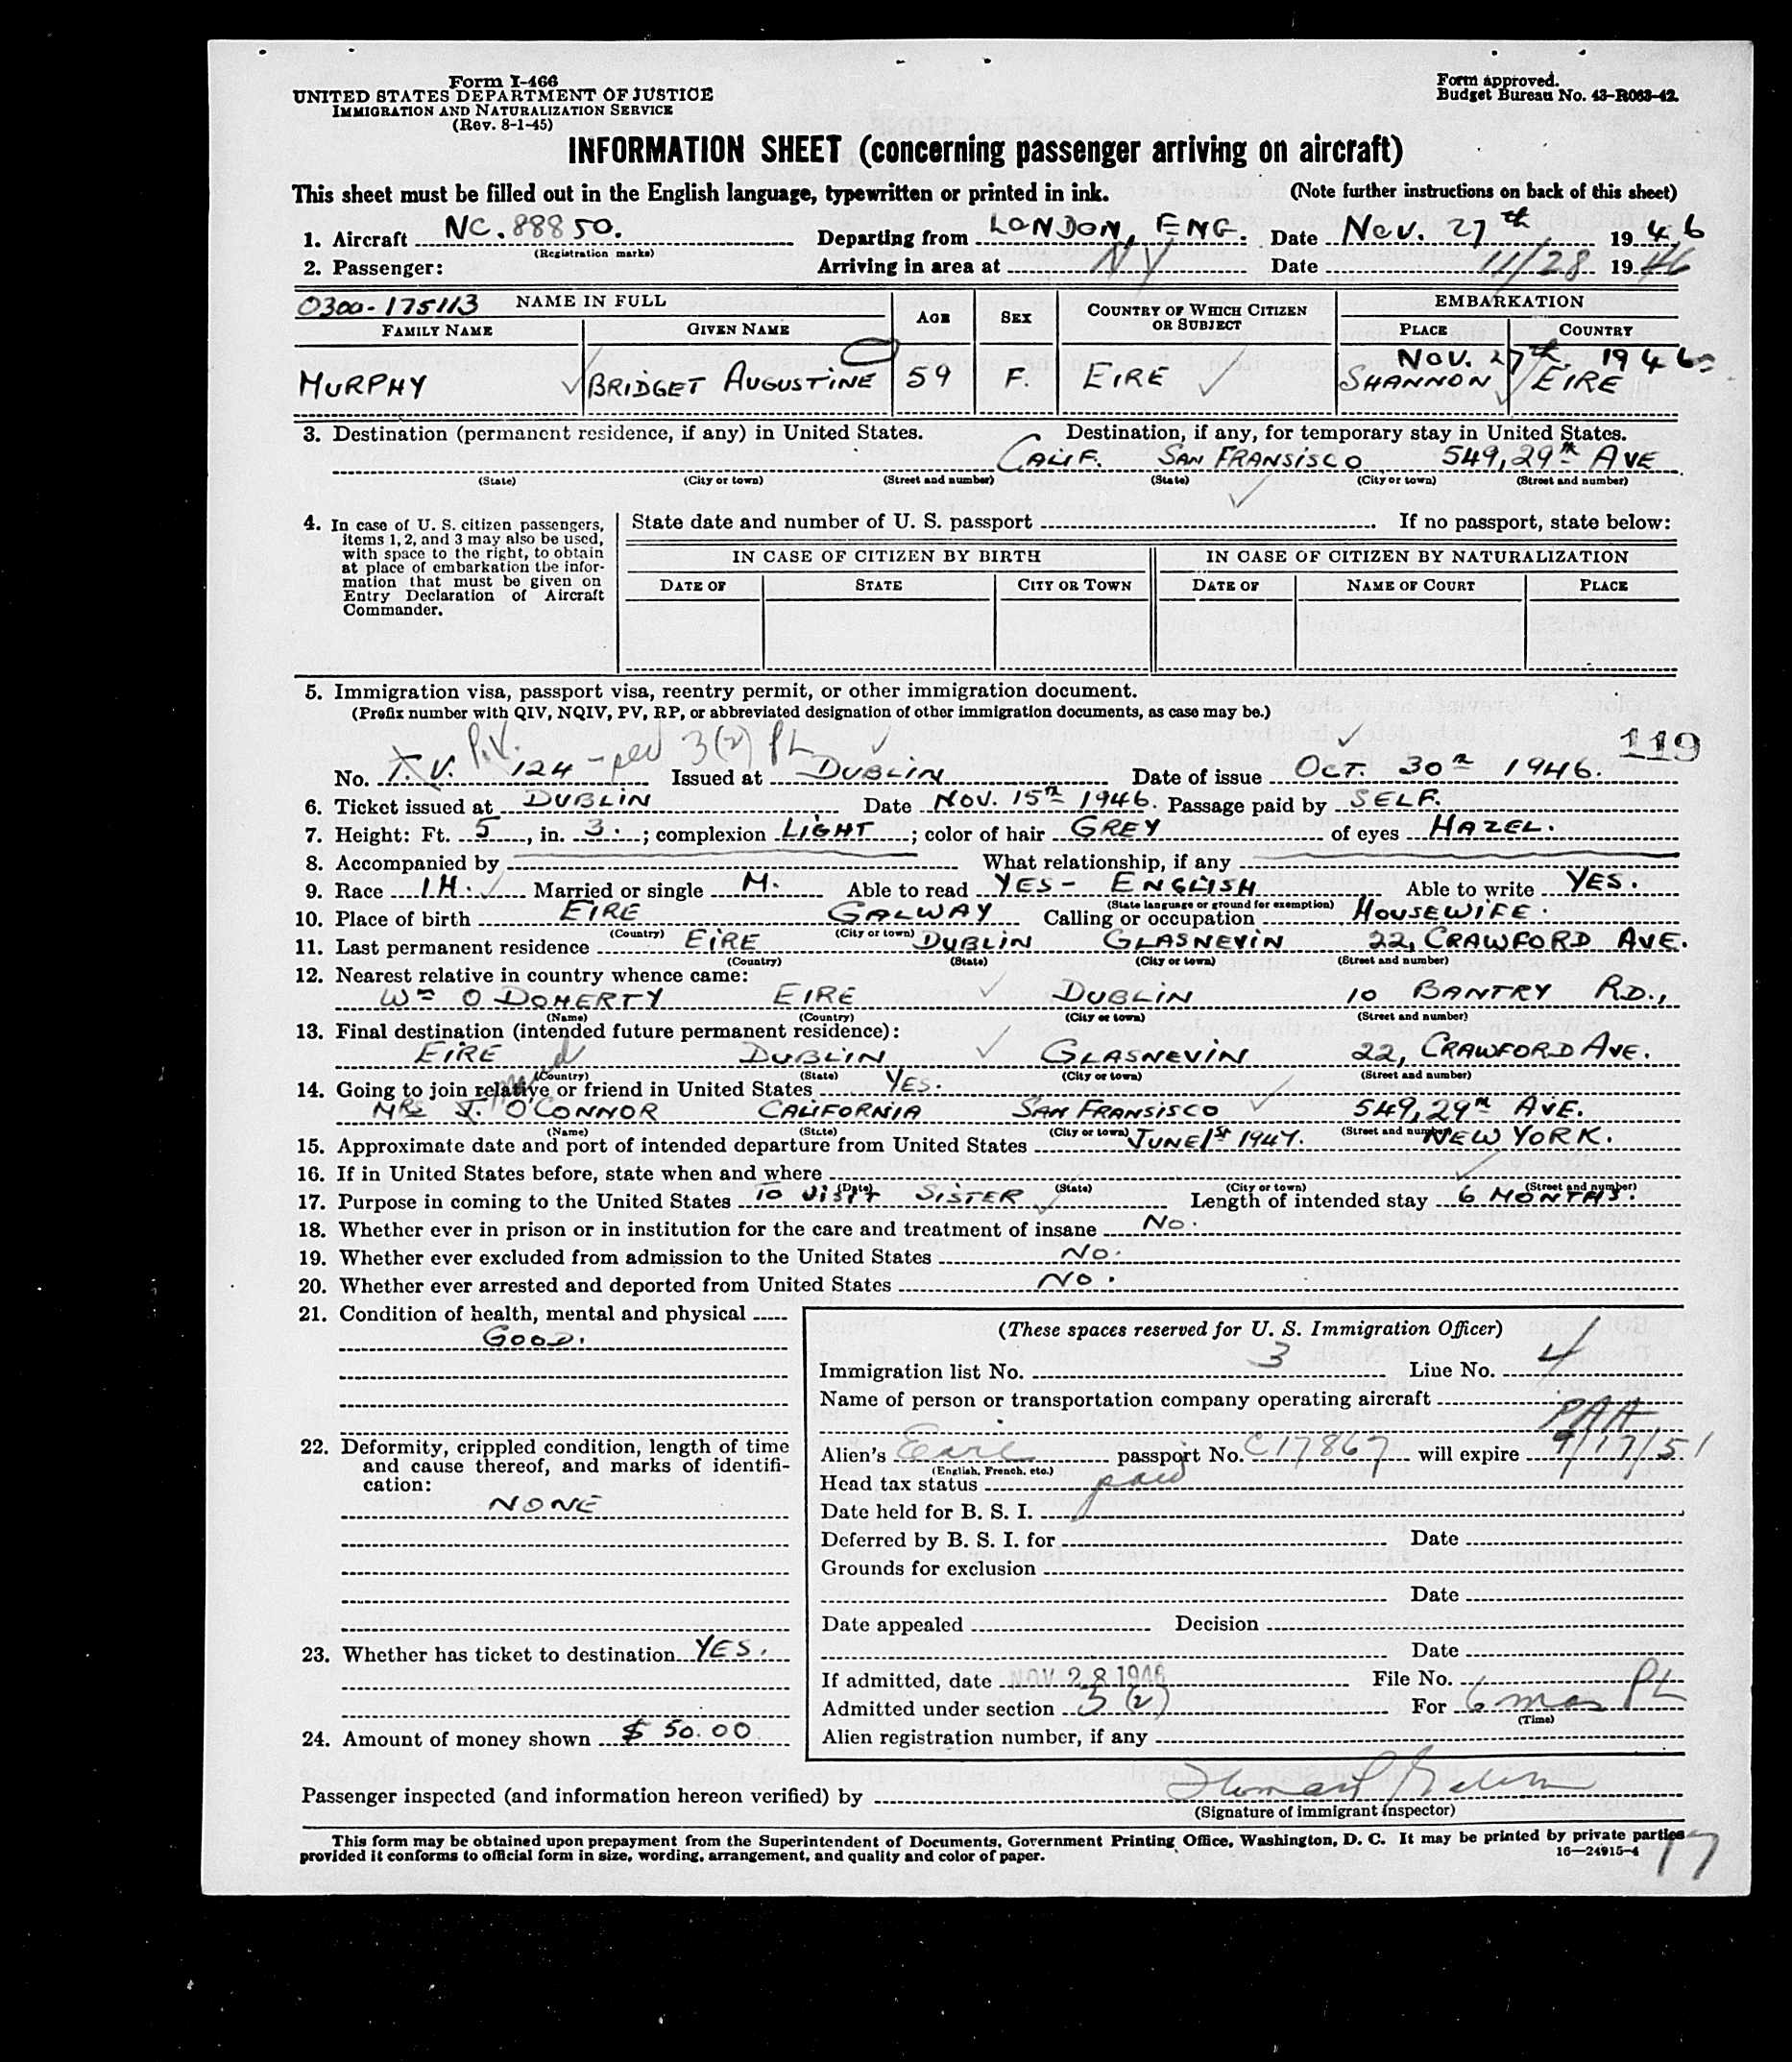 Form I-466
UNITED STATES DEPARTMENT OF JUSTICE
IMMIGRATION AND NATURALIZATION SERVICE
(Rev. 8-1-45)
Form approved.
Budget Bureau No. 43-R063-42.
INFORMATION SHEET (concerning passenger arriving on aircraft)
This sheet must be filled out in the English language, typewritten or printed in ink. (Note further instructions on back of this sheet)
1. Aircraft NC. 88850. Departing from LONDON, ENG. Date Nov. 27th 1946
(Registration marks)
2. Passenger: Arriving in area at NY Date 11/28 1946
0300-175113 NAME IN FULL AGE SEX COUNTRY OF WHICH CITIZEN OR SUBJECT EMBARKATION
FAMILY NAME GIVEN NAME PLACE COUNTRY
NOV. 27th 1946
MURPHY BRIDGET AUGUSTINE 59 F. EIRE SHANNON EIRE
3. Destination (permanent residence, if any) in United States. Destination, if any, for temporary stay in United States.
CALIF. SAN FRANSISCO 549, 29th AVE
(State) (City or town) (Street and number) (State) (City or town) (Street and number)
4. In case of U. S. citizen passengers, items 1, 2, and 3 may also be used, with space to the right, to obtain at place of embarkation the information that must be given on Entry Declaration of Aircraft Commander.
State date and number of U. S. passport If no passport, state below:
IN CASE OF CITIZEN BY BIRTH IN CASE OF CITIZEN BY NATURALIZATION
DATE OF STATE CITY OR TOWN DATE OF NAME OF COURT PLACE
5. Immigration visa, passport visa, reentry permit, or other immigration document.
(Prefix number with QIV, NQIV, PV, RP, or abbreviated designation of other immigration documents, as case may be.)
P.V. 3(2) PL 119
No. T. V. 124 Issued at DUBLIN Date of issue OCT. 30th 1946.
6. Ticket issued at DUBLIN Date NOV. 15th 1946. Passage paid by SELF.
7. Height: Ft. 5, in. 3.; complexion LIGHT; color of hair GREY of eyes HAZEL.
8. Accompanied by What relationship, if any
9. Race I.H. Married or single M. Able to read YES - ENGLISH Able to write YES.
(State language or ground for exemption)
10. Place of birth EIRE GALWAY Calling or occupation HOUSEWIFE.
(Country) (City or town)
11. Last permanent residence EIRE DUBLIN GLASNEVIN 22, CRAWFORD AVE.
(Country) (State) (City or town) (Street and number)
12. Nearest relative in country whence came:
Wm O DOHERTY EIRE DUBLIN 10 BANTRY RD.,
(Name) (Country) (City or town) (Street and number)
13. Final destination (intended future permanent residence):
EIRE DUBLIN GLASNEVIN 22, CRAWFORD AVE.
(Country) (State) (City or town) (Street and number)
14. Going to join relative or friend in United States YES.
MRS J. O'CONNOR CALIFORNIA SAN FRANSISCO 549, 29th AVE.
(Name) (State) (City or town) (Street and number)
15. Approximate date and port of intended departure from United States JUNE 1st 1947. NEW YORK.
16. If in United States before, state when and where
(Date) (State) (City or town) (Street and number)
17. Purpose in coming to the United States TO VISIT SISTER Length of intended stay 6 MONTHS.
18. Whether ever in prison or in institution for the care and treatment of insane No.
19. Whether ever excluded from admission to the United States No.
20. Whether ever arrested and deported from United States No.
21. Condition of health, mental and physical
GOOD.
22. Deformity, crippled condition, length of time and cause thereof, and marks of identification:
NONE
23. Whether has ticket to destination YES.
24. Amount of money shown $ 50.00
(These spaces reserved for U. S. Immigration Officer)
Immigration list No. 3 Line No. 4
Name of person or transportation company operating aircraft
PAA
Alien's passport No. C17867 will expire 9/17/51
(English, French, etc.)
Head tax status paid
Date held for B. S. I.
Deferred by B. S. I. for Date
Grounds for exclusion
Date
Date appealed Decision
Date
If admitted, date NOV 28 1946 File No.
Admitted under section 3 (2) For 6 mos PL
(Time)
Alien registration number, if any
Passenger inspected (and information hereon verified) by
(Signature of immigrant inspector)
This form may be obtained upon prepayment from the Superintendent of Documents, Government Printing Office, Washington, D. C. It may be printed by private parties
provided it conforms to official form in size, wording, arrangement, and quality and color of paper. 16—24915-4
17